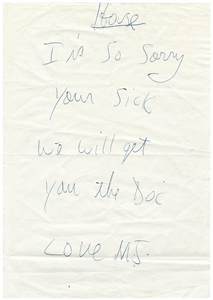 House
I is So Sorry
Your Sick
we will get
you the Doc
Love MJ.